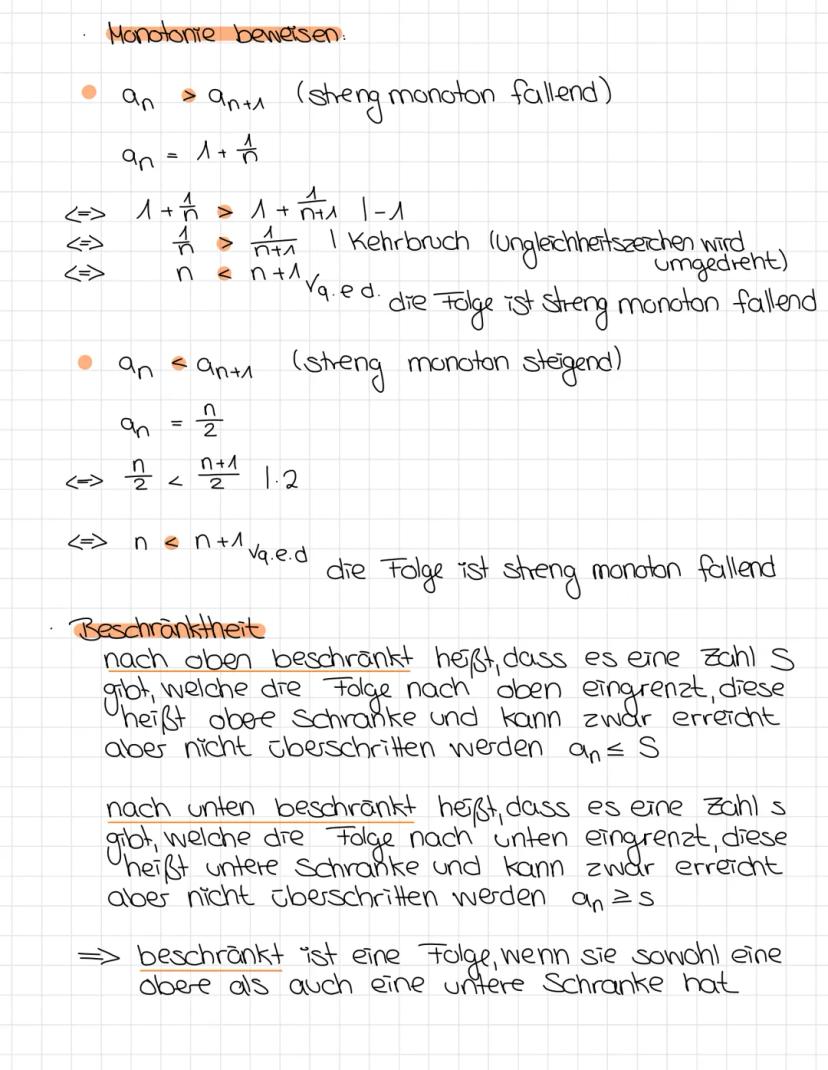 · Monotonie beweisen:
• aₙ > aₙ₊₁ (streng monoton fallend)
aₙ = 1 + 1/n
<=> 1 + 1/n > 1 + 1/(n+1) | -1
<=> 1/n > 1/(n+1) | Kehrbruch (Ungleichheitszeichen wird umgedreht)
<=> n < n+1 √q.e.d. die Folge ist streng monoton fallend
• aₙ < aₙ₊₁ (streng monoton steigend)
aₙ = n/2
<=> n/2 < (n+1)/2 | · 2
<=> n < n+1 √q.e.d die Folge ist streng monoton fallend
· Beschränktheit
nach oben beschränkt heißt, dass es eine Zahl S
gibt, welche die Folge nach oben eingrenzt, diese
heißt obere Schranke und kann zwar erreicht
aber nicht überschritten werden aₙ ≤ S
nach unten beschränkt heißt, dass es eine Zahl s
gibt, welche die Folge nach unten eingrenzt, diese
heißt untere Schranke und kann zwar erreicht
aber nicht überschritten werden aₙ ≥ s
=> beschränkt ist eine Folge, wenn sie sowohl eine
obere als auch eine untere Schranke hat